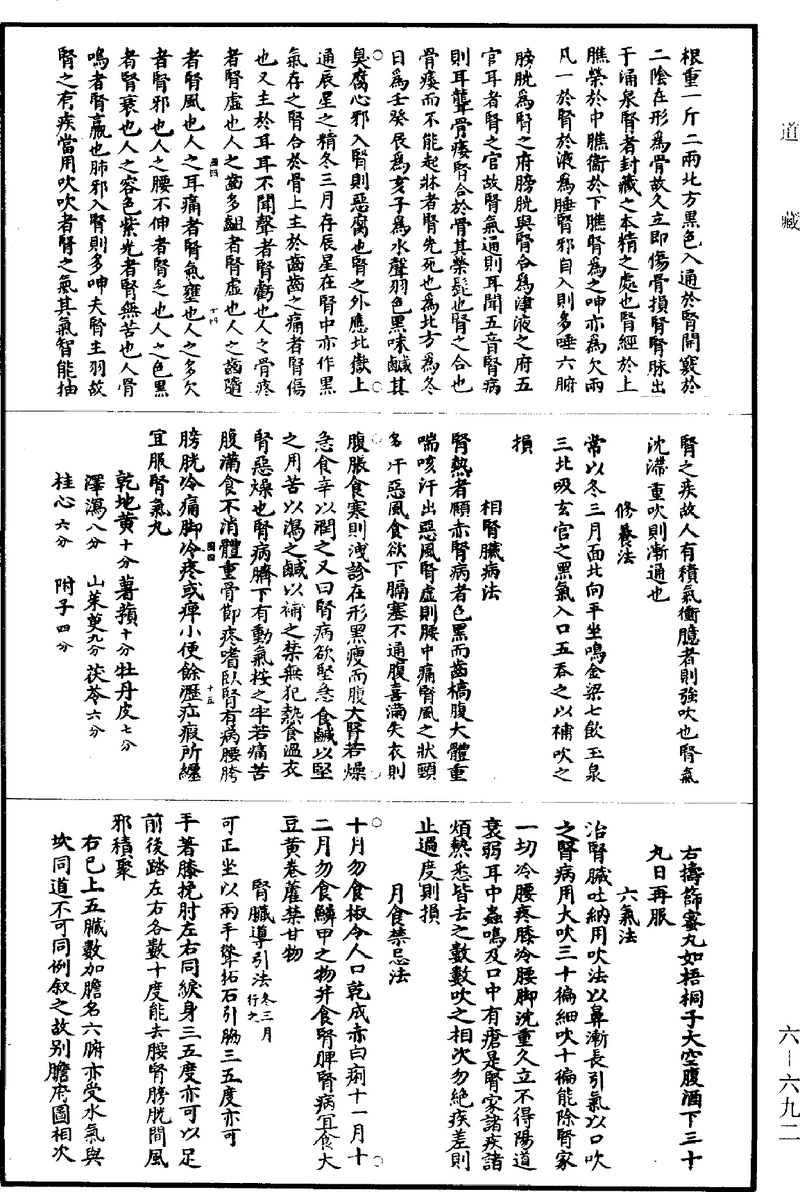 道藏
根重一斤二兩北方黑色入通於腎開竅於
二陰在形為骨故久立即傷骨損腎腎脉出
于涌泉腎者封藏之本精之處也腎經於上
膲榮於中膲衞於下膲腎為之呻亦為欠兩
凡一於腎於液為唾腎邪自入則多唾六腑
膀胱為腎之府膀胱與腎合為津液之府五
官耳者腎之官故腎氣通則耳聞五音腎病
則耳聾骨痿腎合於骨其榮髭也腎之合也
骨痿而不能起牀者腎先死也為北方為冬
日為壬癸辰為亥子為水聲羽色黑味鹹其
臭腐心邪入腎則惡腐也腎之外應北嶽上
通辰星之精冬三月存辰星在腎中亦作黑
氣存之腎合於骨上主於齒齒之痛者腎傷
也又主於耳耳不聞聲者腎虧也人之骨疼
者腎虛也人之齒多齟者腎虛也人之齒隨
者腎風也人之耳痛者腎氣壅也人之多欠
者腎邪也人之腰不伸者腎乏也人之色黑
者腎衰也人之容色紫光者腎無苦也人骨
鳴者腎羸也肺邪入腎則多呻夫腎主羽故
腎之有疾當用吹吹者腎之氣其氣智能抽
腎之疾故人有積氣衝臆者則強吹也腎氣
沈滯重吹則漸通也
修養法
常以冬三月面北向平坐鳴金梁七飲玉泉
三北吸玄宫之黑氣入口五吞之以補吹之
損
相腎臟病法
腎熱者頤赤腎病者色黑而齒槁腹大體重
喘咳汗出惡風腎虛則腰中痛腎風之狀頸
多汗惡風食欲下膈塞不通腹喜滿失衣則
腹脹食寒則洩診在形黑瘦而腹大腎若燥
急食辛以潤之又曰腎病欲堅急食鹹以堅
之用苦以瀉之鹹以補之禁無犯熱食温衣
腎惡燥也腎病臍下有動氣按之牢若痛苦
腹滿食不消體重骨節疼嗜臥腎有病腰胯
膀胱冷痛脚冷疼或痺小便餘瀝疝瘕所纏
宜服腎氣丸
乾地黄十分 薯蕷十分 牡丹皮七分
澤瀉八分 山茱萸九分 茯苓六分
桂心六分 附子四分
右擣篩蜜丸如梧桐子大空腹酒下三十
九日再服
六氣法
治腎臟吐納用吹法以鼻漸長引氣以口吹
之腎病用大吹三十徧細吹十徧能除腎家
一切冷腰疼膝冷腰脚沈重久立不得陽道
衰弱耳中蟲鳴及口中有瘡是腎家諸疾諸
煩熱悉皆去之數數吹之相次勿絶疾差則
止過度則損
月食禁忌法
十月勿食椒令人口乾成赤白痢十一月十
二月勿食鱗甲之物并食腎脾腎病宜食大
豆黄卷藿禁甘物
腎臟導引法冬三月行之
可正坐以兩手聳拓石引脇三五度亦可
手著膝挽肘左右同緱身三五度亦可以足
前後踏左右各數十度能去腰腎膀胱間風
邪積聚
右已上五臟數加膽名六腑亦受水氣與
坎同道不可同例叙之故别膽府圖相次
六-六九二